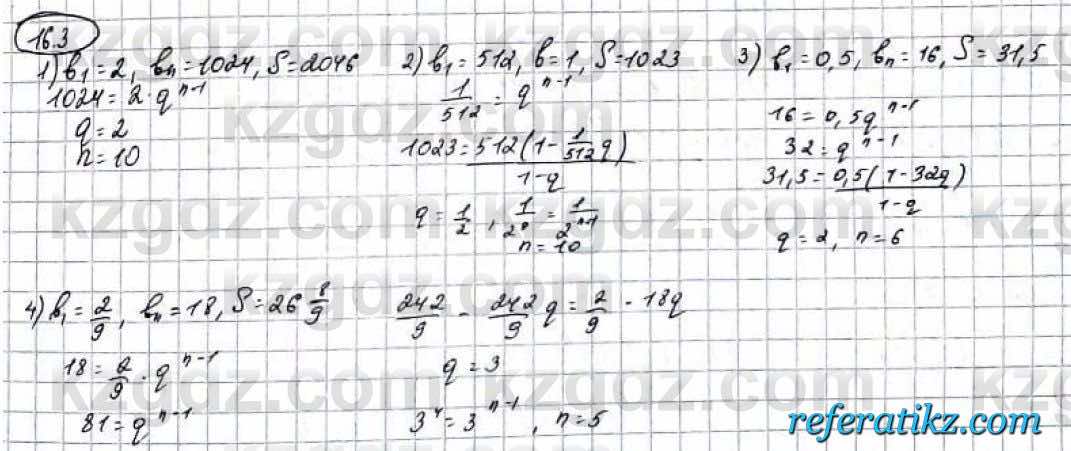 16.3
1) b₁ = 2, bₙ = 1024, S = 2046
1024 = 2 · q^(n-1)
q = 2
n = 10
2) b₁ = 512, b = 1, S = 1023
1/512 = q^(n-1)
1023 = 512(1 - 1/512 q) / (1 - q)
q = 1/2, 1/2⁹ = 1/2^(n-1)
n = 10
3) b₁ = 0,5, bₙ = 16, S = 31,5
16 = 0,5q^(n-1)
32 = q^(n-1)
31,5 = 0,5(1 - 32q) / (1 - q)
q = 2, n = 6
4) b₁ = 2/9, bₙ = 18, S = 26 8/9
18 = 2/9 · q^(n-1)
81 = q^(n-1)
242/9 - 242/9 q = 2/9 - 18q
q = 3
3⁴ = 3^(n-1), n = 5
kzgdz.com
referatikz.com